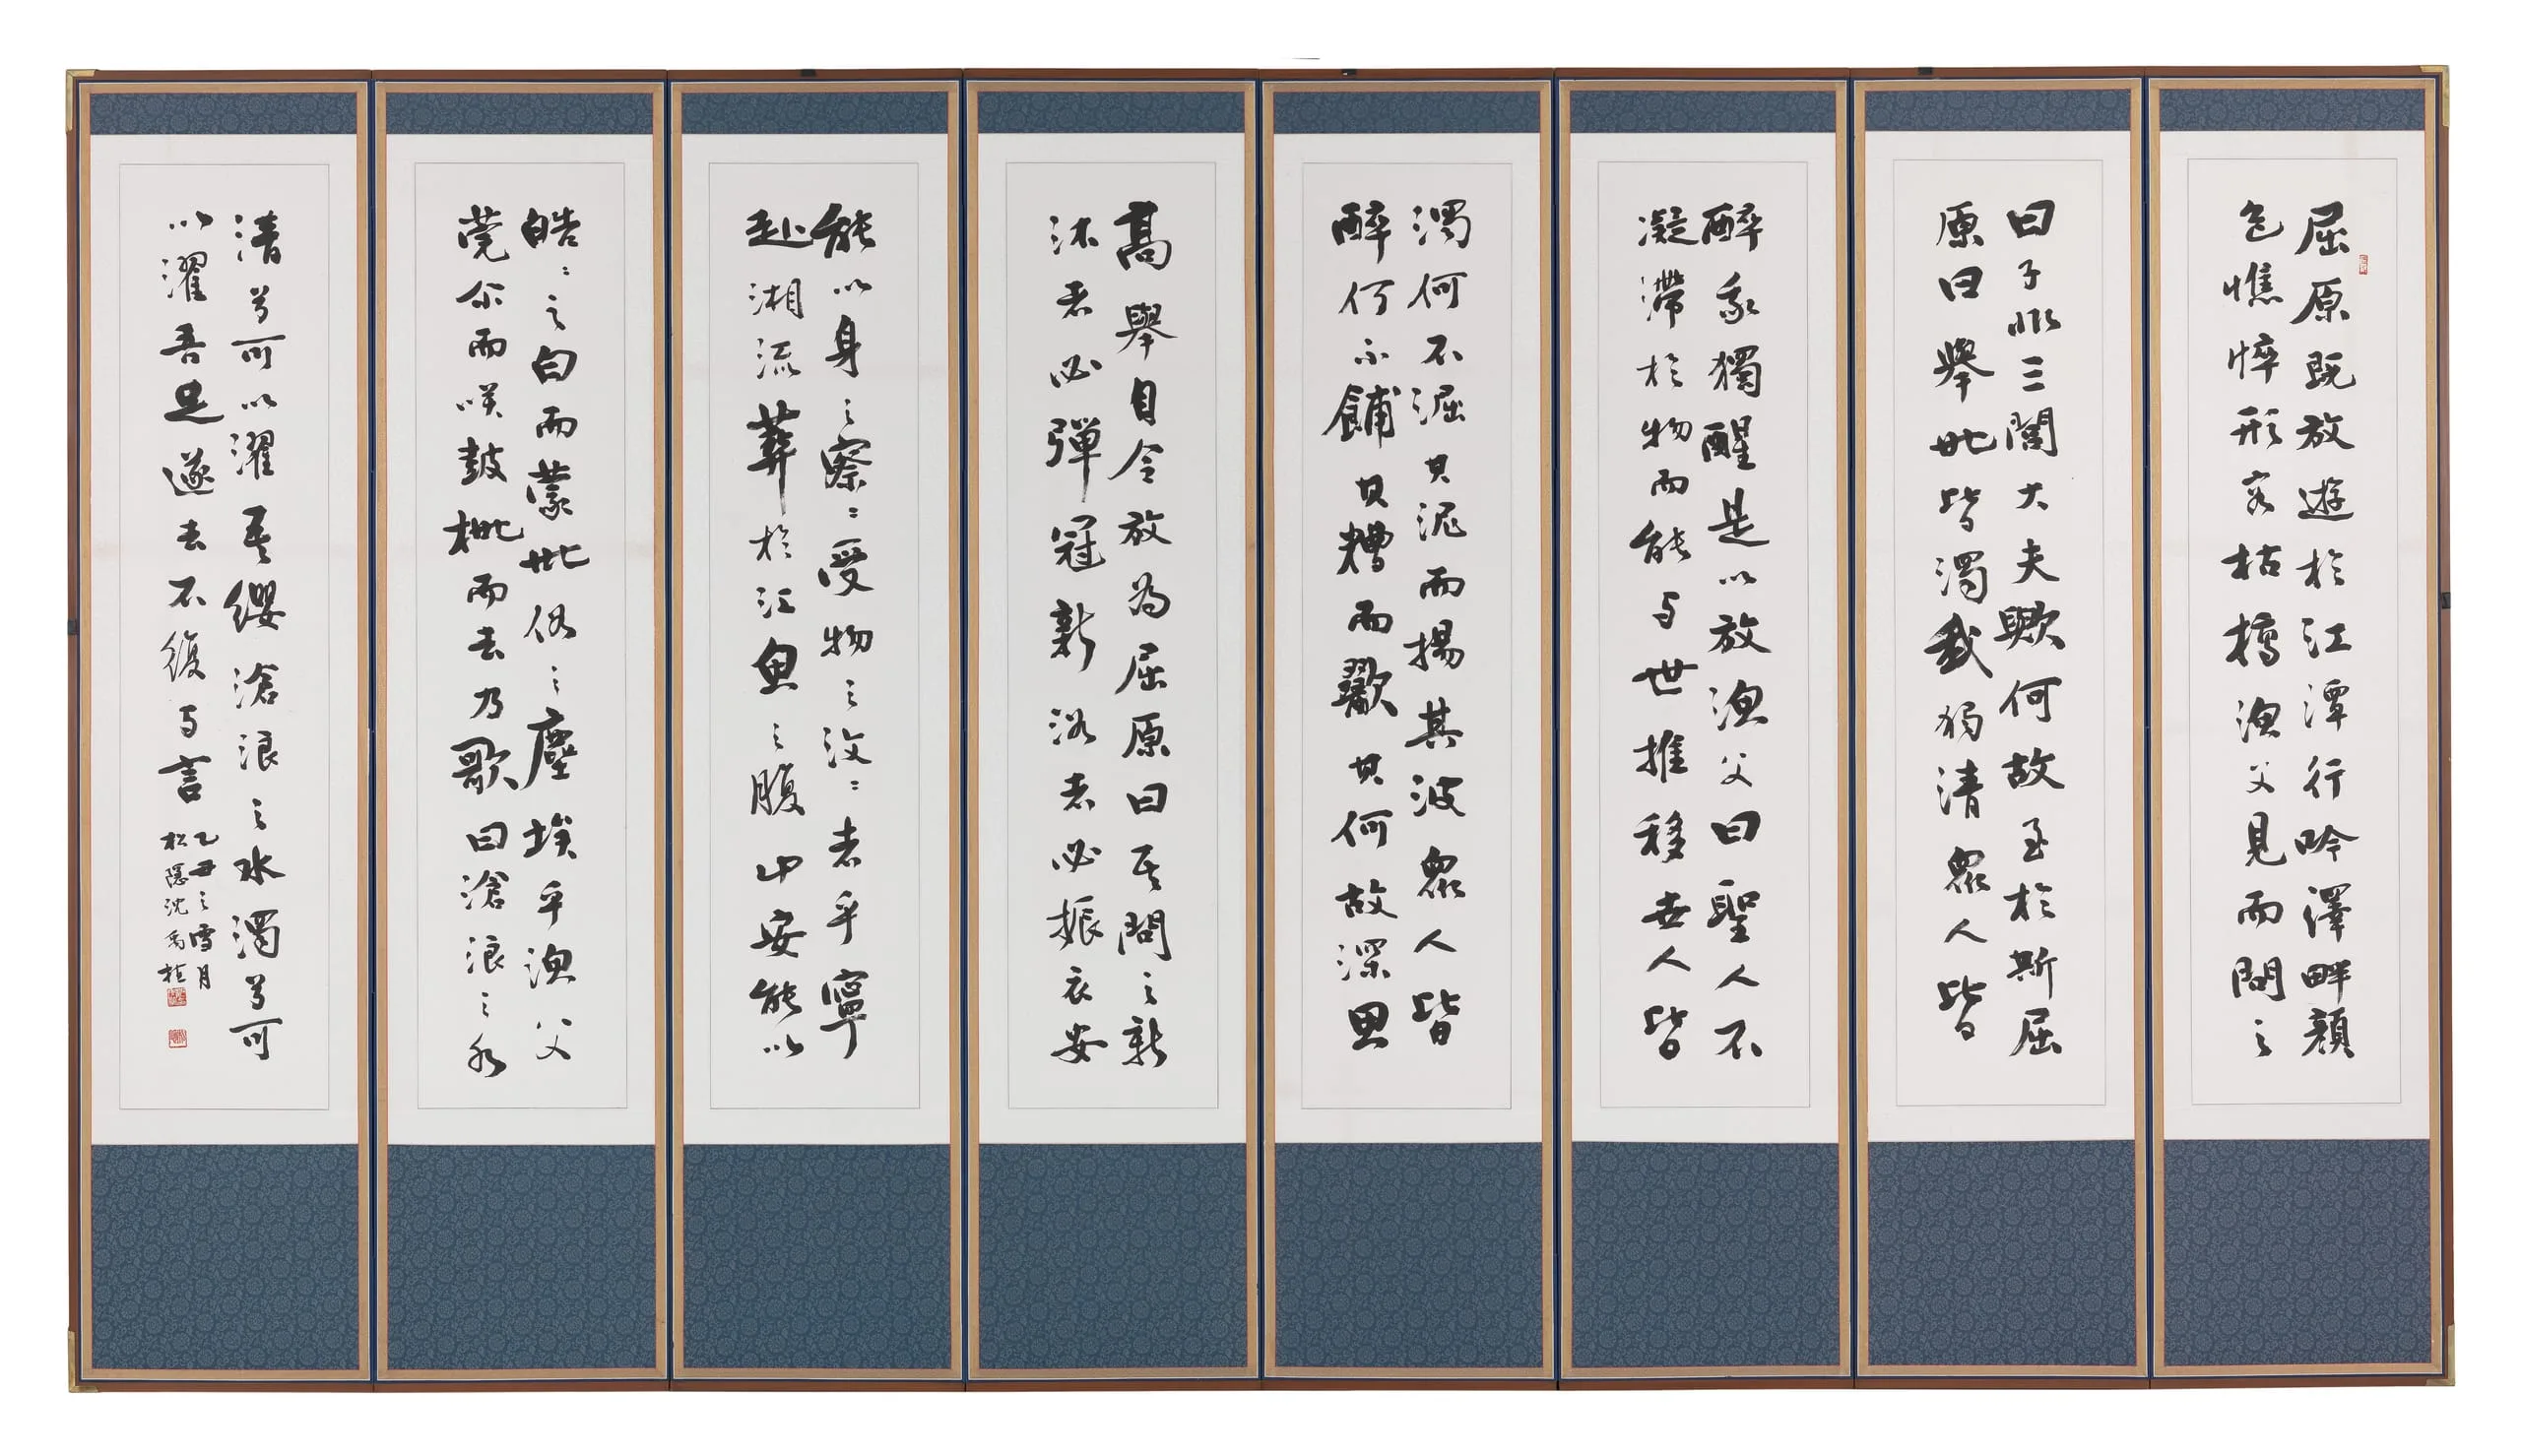 屈原既放遊於江潭行吟澤畔顔
色憔悴形容枯槁漁父見而問之
曰子非三閭大夫歟何故至於斯屈
原曰擧世皆濁我独清衆人皆
醉我獨醒是以放漁父曰聖人不
凝滯於物而能与世推移世人皆
濁何不淈其泥而揚其波衆人皆
醉何不餔其糟而歠其何故深思
高擧自令放為屈原曰吾聞之新
沐者必彈冠新浴者必振衣安
能以身之察〻受物之汶〻者乎寧
赴湘流葬於江魚之腹中安能以
皓〻之白而蒙世俗之塵埃乎漁父
莞尔而咲鼓枻而去乃歌曰滄浪之水
清兮可以濯吾纓滄浪之水濁兮可
以濯吾足遂去不復与言
乙丑之雪月
松隱沈禹植